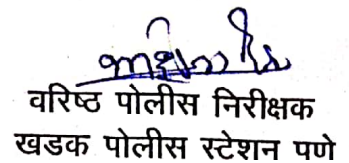 वरिष्ठ पोलीस निरीक्षक
खडक पोलीस स्टेशन पुणे